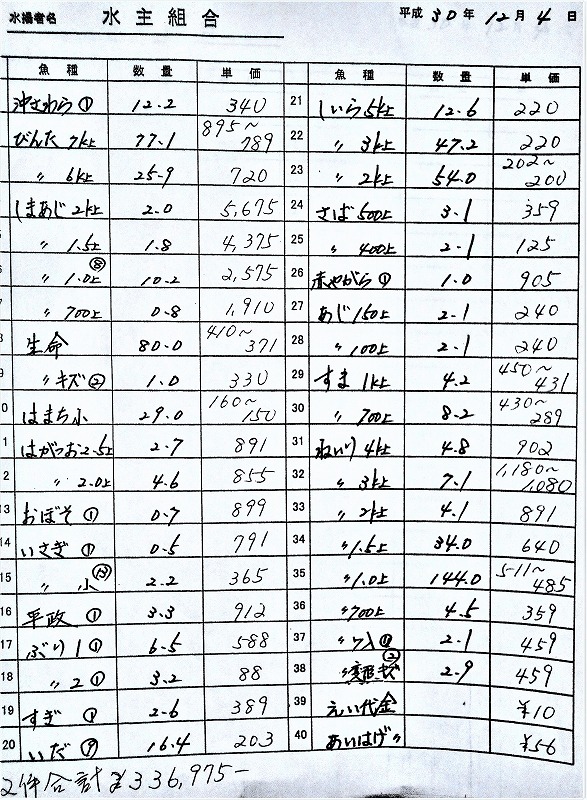 水揚者名 水主組合 平成30年12月4日
魚種 数量 単価
沖さわら① 12.2 340
びんた7k上 77.1 895~789
〃 6k上 25.9 720
しまあじ2k上 2.0 5,675
〃 1.5上 1.8 4,375
〃 1.0上⑧ 10.2 2,575
〃 700上 0.8 1,910
生命 80.0 410~371
〃キズ② 1.0 330
はまち小 29.0 160~150
はがつお2.5上 2.7 891
〃 2.0上 4.6 855
13 おぼそ① 0.7 899
14 いさぎ① 0.5 791
15 〃 小⑬ 2.2 365
16 平政① 3.3 912
17 ぶり1① 6.5 588
18 〃 2① 3.2 88
19 すぎ① 2.6 389
20 いだ⑨ 16.4 203
魚種 数量 単価
21 しいら5k上 12.6 220
22 〃 3k上 47.2 220
23 〃 2k上 54.0 202~200
24 さば500上 3.1 359
25 〃 400上 2.1 125
26 赤やがら① 1.0 905
27 あじ150上 2.1 240
28 〃100上 2.1 240
29 すま1k上 4.2 450~431
30 〃 700上 8.2 430~289
31 ねいり4k上 4.8 902
32 〃 3k上 7.1 1,180~1,080
33 〃 2k上 4.1 891
34 〃1.5上 34.0 640
35 〃1.0上 144.0 511~485
36 〃700上 4.5 359
37 2.1 459
38 2.9 459
39 えい代金 ¥10
40 あいはげ〃 ¥56
2件合計¥336,975-